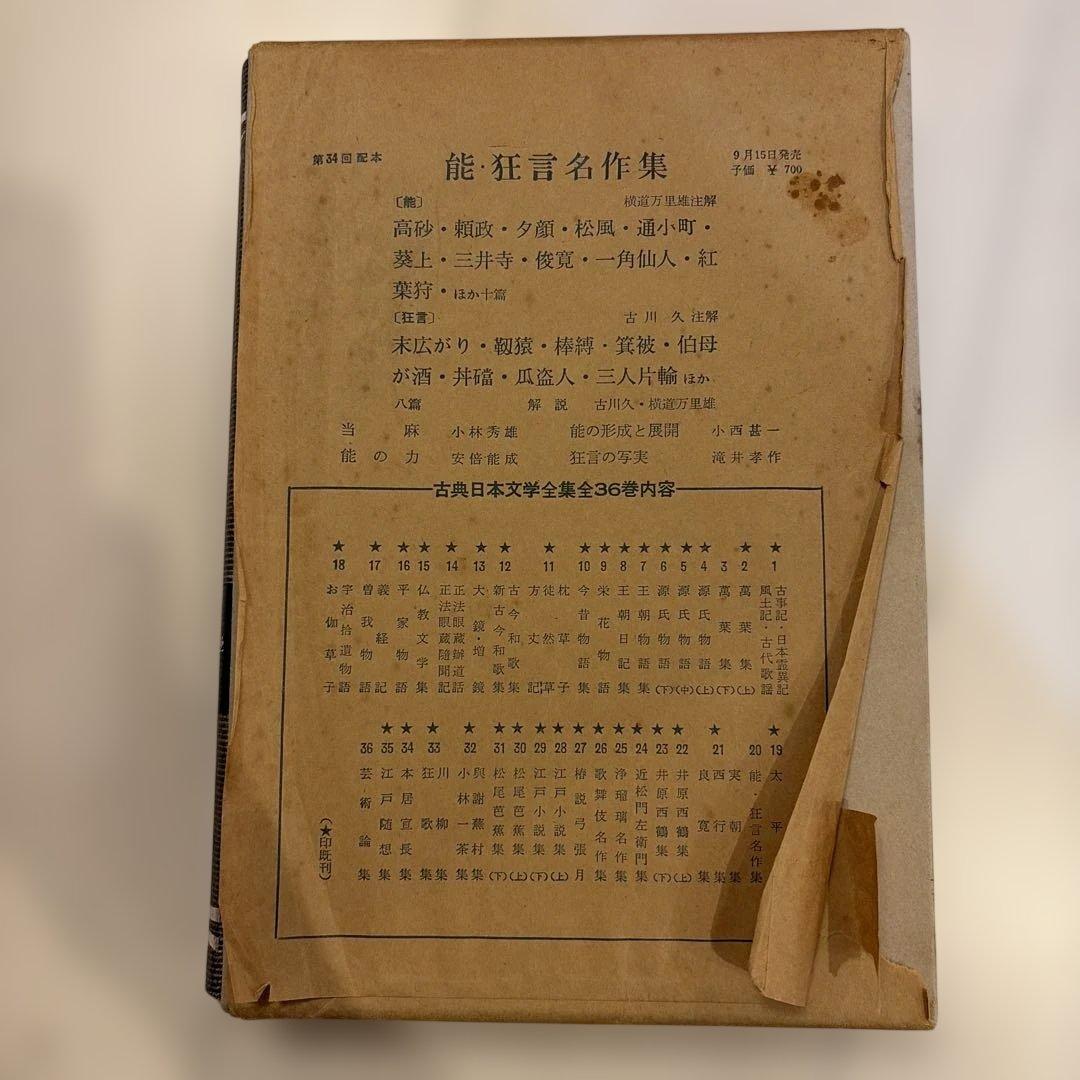 第34回配本
能・狂言名作集
9月15日発売
予価 ￥700
〔能〕 横道万里雄注解
高砂・頼政・夕顔・松風・通小町・
葵上・三井寺・俊寛・一角仙人・紅
葉狩・ほか十篇
〔狂言〕 古川 久 注解
末広がり・靱猿・棒縛・箕被・伯母
が酒・丼礑・瓜盗人・三人片輪 ほか
八篇 解説 古川久・横道万里雄
当麻 小林秀雄 能の形成と展開 小西甚一
能の力 安倍能成 狂言の写実 滝井孝作
古典日本文学全集全36巻内容
★1 古事記・日本霊異記
風土記・古代歌謡
★2 萬葉集(上)
3 萬葉集(下)
★4 源氏物語(上)
★5 源氏物語(中)
★6 源氏物語(下)
★7 王朝物語集
★8 王朝日記集
★9 栄花物語
★10 今昔物語
★11 枕草子
徒然草
方丈記
★12 古今和歌集
新古今和歌集
★13 大鏡・増鏡
★14 正法眼蔵辦道話
正法眼蔵随聞記
★15 仏教文学集
★16 平家物語
★17 義経記
曽我物語
★18 宇治拾遺物語
お伽草子
★19 太平
20 能・狂言名作集
★21 実朝集
西行集
良寛集
★22 井原西鶴集(上)
★23 井原西鶴集(下)
★24 近松門左衛門集
★25 浄瑠璃名作集
★26 歌舞伎名作集
★27 椿説弓張月
★28 江戸小説集(上)
★29 江戸小説集(下)
★30 松尾芭蕉集(上)
★31 松尾芭蕉集(下)
★32 與謝蕪村集
小林一茶集
★33 川柳集
狂歌集
★34 本居宣長集
★35 江戸随想集
36 芸術論集
(★印既刊)